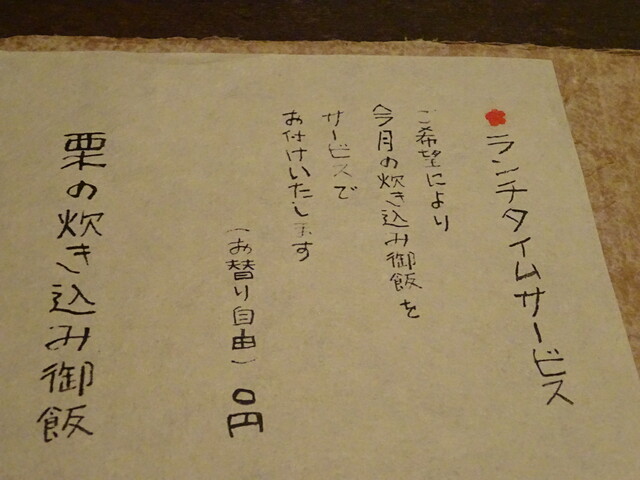 ランチタイムサービス
ご希望により
今月の炊き込み御飯を
サービスで
お付けいたします
(お替り自由) 0円
栗の炊き込み御飯